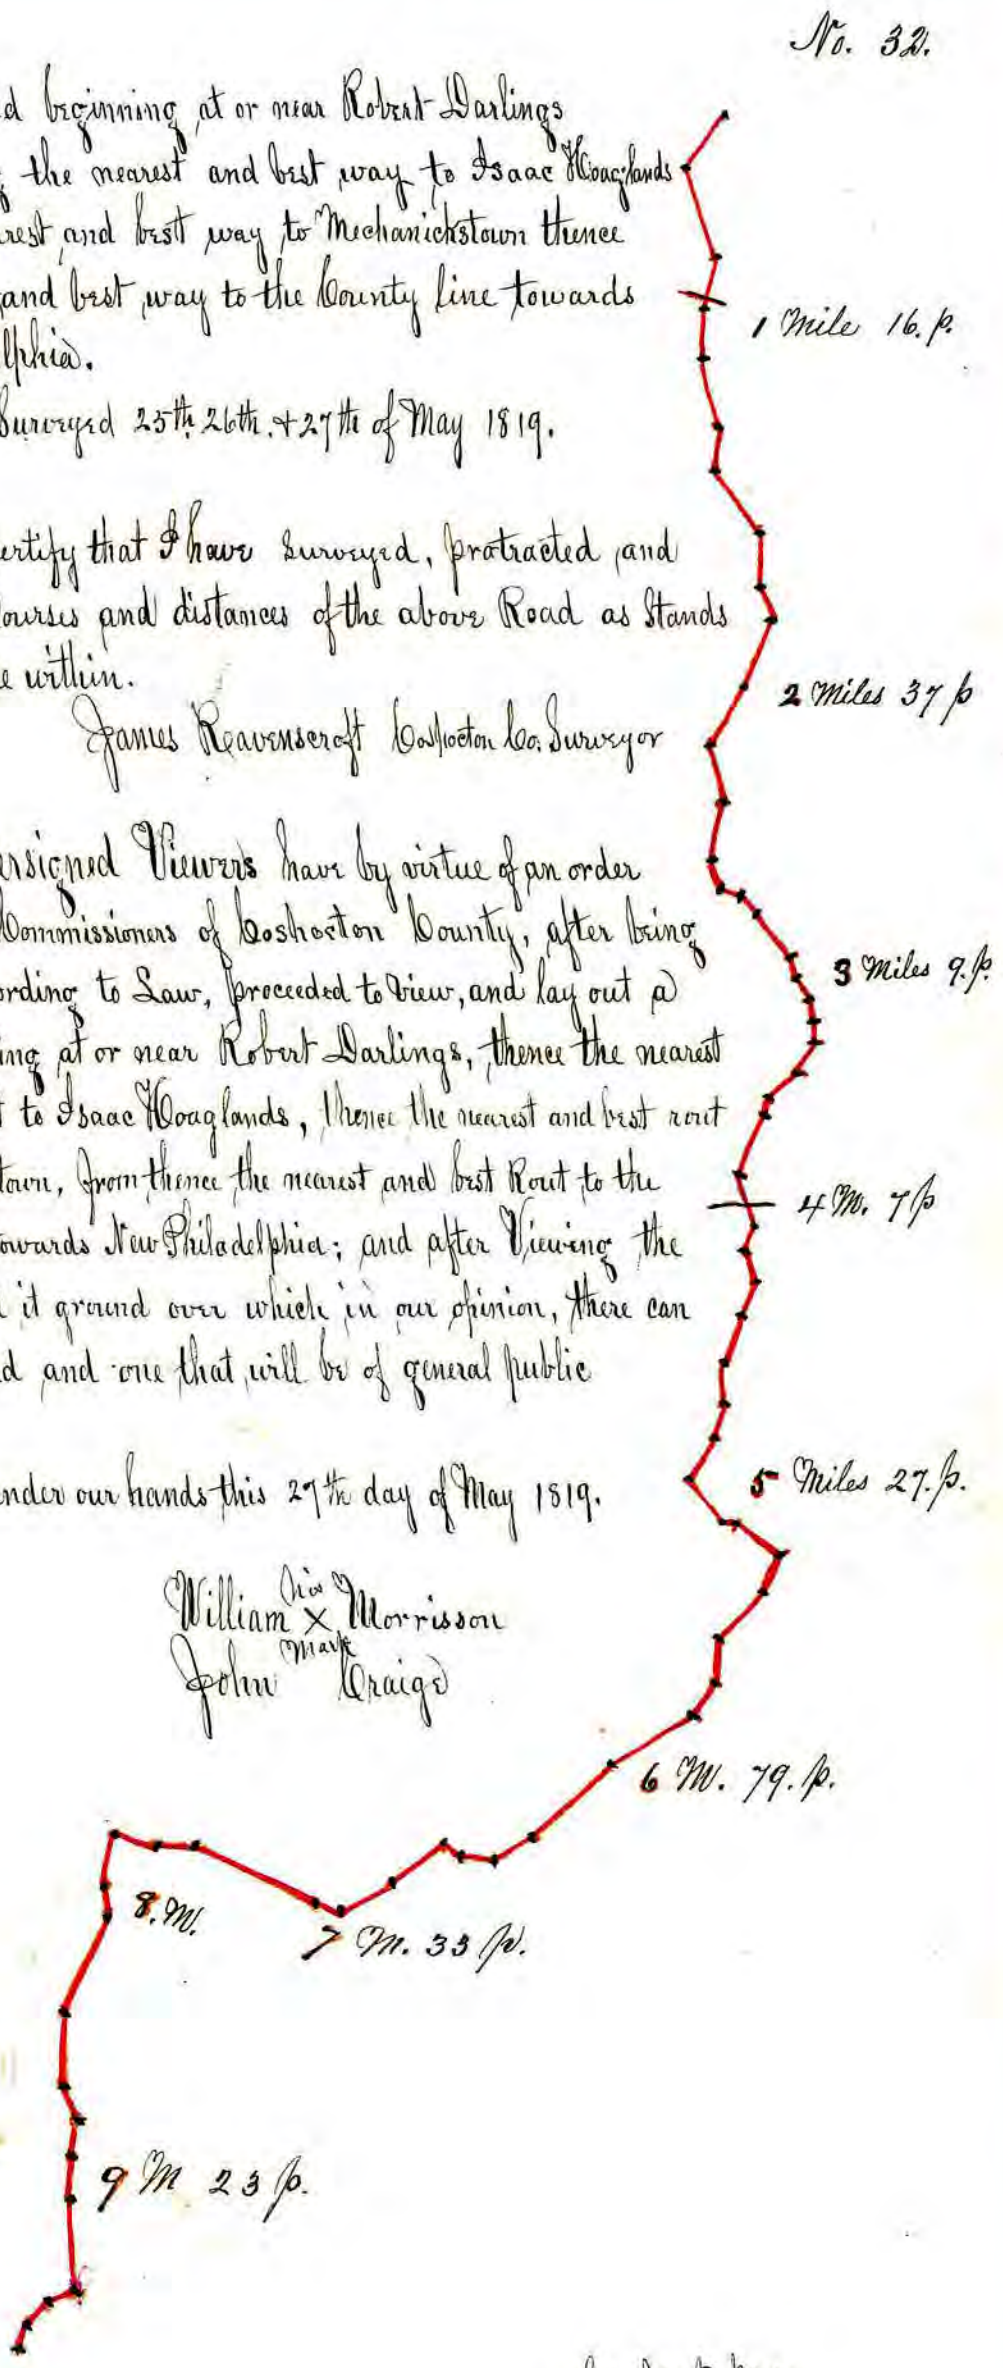 No. 32.
d beginning at or near Robert Darlings
the nearest and best way to Isaac Hoaglands
rest and best way to Mechanickstown thence
and best way to the County line towards
lphia.
Surveyed 25th, 26th, + 27th of May 1819.
1 Mile 16. p.
ertify that I have Surveyed, protracted and
ourses and distances of the above Road as Stands
e within.
James Reavenscroft Coshocton Co. Surveyor
2 Miles 37 p
ersigned Viewers have by virtue of an order
Commissioners of Coshocton County, after being
ording to Law, proceeded to View, and lay out a
ing at or near Robert Darlings, thence the nearest
t to Isaac Hoaglands, thence the nearest and best rout
town, from thence the nearest and best Rout to the
owards New Philadelphia; and after Viewing the
it ground over which in our opinion, there can
d and one that will be of general public
3 Miles 9. p.
4 M. 7 p
nder our hands this 27th day of May 1819.
5 Miles 27. p.
his
William X Morrisson
mark
John Craige
6 M. 79. p.
7 M. 33 p.
8. M.
9 M 23 p.